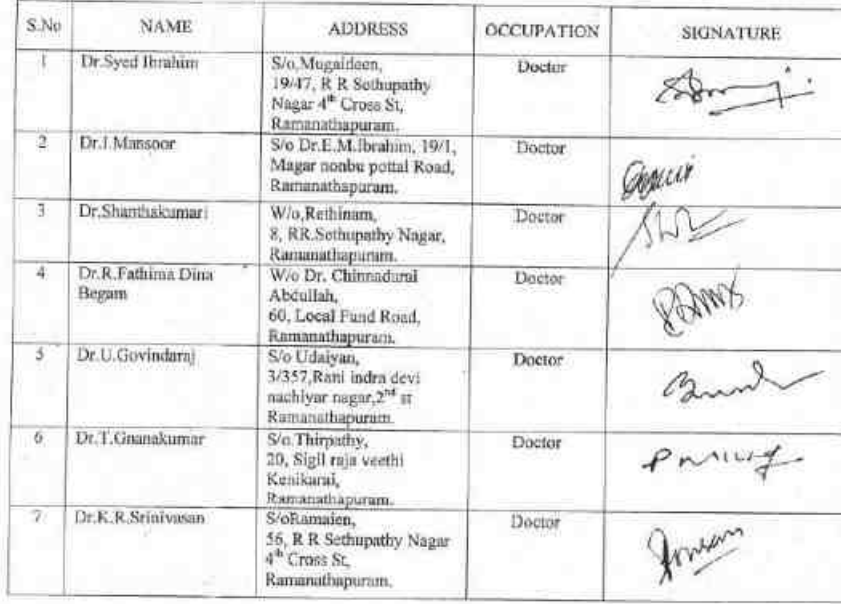 S.No NAME ADDRESS OCCUPATION SIGNATURE
1 Dr.Syed Ibrahim S/o,Mugaideen, Doctor
19/47, R R Sethupathy
Nagar 4th Cross St,
Ramanathapuram.
2 Dr.I.Mansoor S/o Dr.E.M.Ibrahim, 19/1, Doctor
Magar nonbu pottal Road,
Ramanathapuram.
3 Dr.Shanthakumari W/o,Rethinam, Doctor
8, RR.Sethupathy Nagar,
Ramanathapuram.
4 Dr.R.Fathima Dina W/o Dr. Chinnadurai Doctor
Begam Abdullah,
60, Local Fund Road,
Ramanathapuram.
5 Dr.U.Govindaraj S/o Udaiyan, Doctor
3/357,Rani indra devi
nachiyar nagar,2nd st
Ramanathapuram.
6 Dr.T.Gnanakumar S/o.Thirpathy, Doctor
20, Sigil raja veethi
Kenikarai,
Ramanathapuram.
7 Dr.K.R.Srinivasan S/oRamaien, Doctor
56, R R Sethupathy Nagar
4th Cross St,
Ramanathapuram.